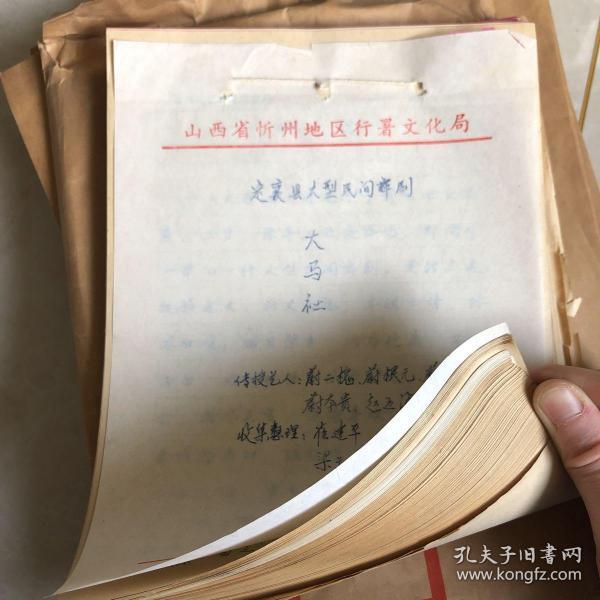 山西省忻州地区行署文化局
定襄县大型民间祁剧
大
马
社
传授艺人:蔚二槐、蔚根元、
蔚存贵、赵五
收集整理:崔建平
梁
孔夫子旧书网
www.kongfz.com